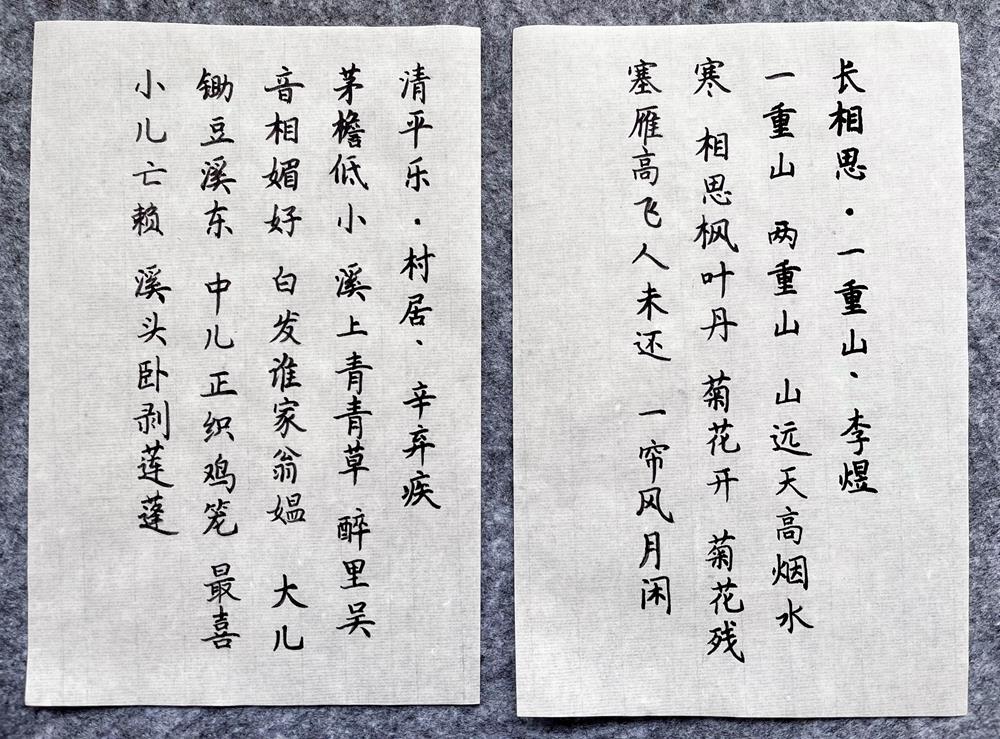 长相思·一重山·李煜
一重山 两重山 山远天高烟水
寒 相思枫叶丹 菊花开 菊花残
塞雁高飞人未还 一帘风月闲
清平乐·村居·辛弃疾
茅檐低小 溪上青青草 醉里吴
音相媚好 白发谁家翁媪 大儿
锄豆溪东 中儿正织鸡笼 最喜
小儿亡赖 溪头卧剥莲蓬